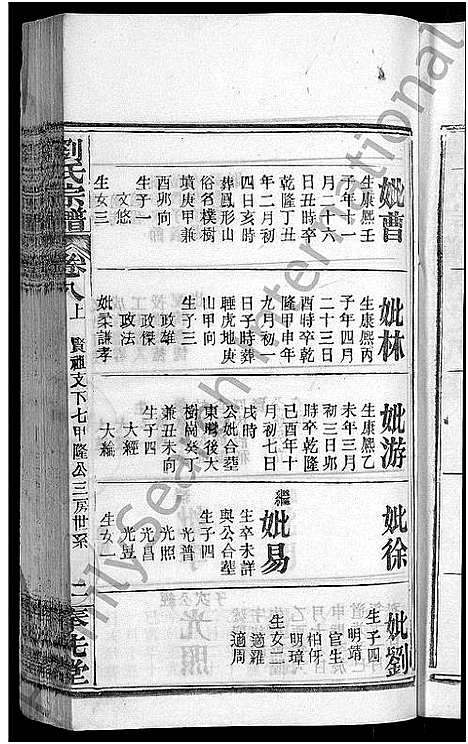 妣曹
生康熙壬
子年十一
月二十六
日丑時卒
乾隆丁丑
年二月初
四日亥時
葬鳳形山
俗名樸樹
墳庚甲兼
酉卯向
生子一
文悠
生女三
妣林
生康熙丙
子年四月
二十三日
酉時卒乾
隆甲申年
九月初一
日子時葬
睡虎地庚
山甲向
生子三
政雄
政傑
政法
妣柔謙孝
妣游
生康熙乙
未年三月
初三日卯
時卒乾隆
己酉年十
月初七日
戌時
公妣合塟
東賜後大
樹崗癸丁
兼丑未向
生子四
大經
大綸
妣徐
繼
妣易
生卒未詳
與公合塟
生子四
光普
光照
光昌
光曼
生女一
妣劉
生子四
明靖
官生
柏伢
明璋
生女二
適羅
適周
劉氏宗譜
卷八上
賢祖文下七甲隆公三房世系
二
Family Search International